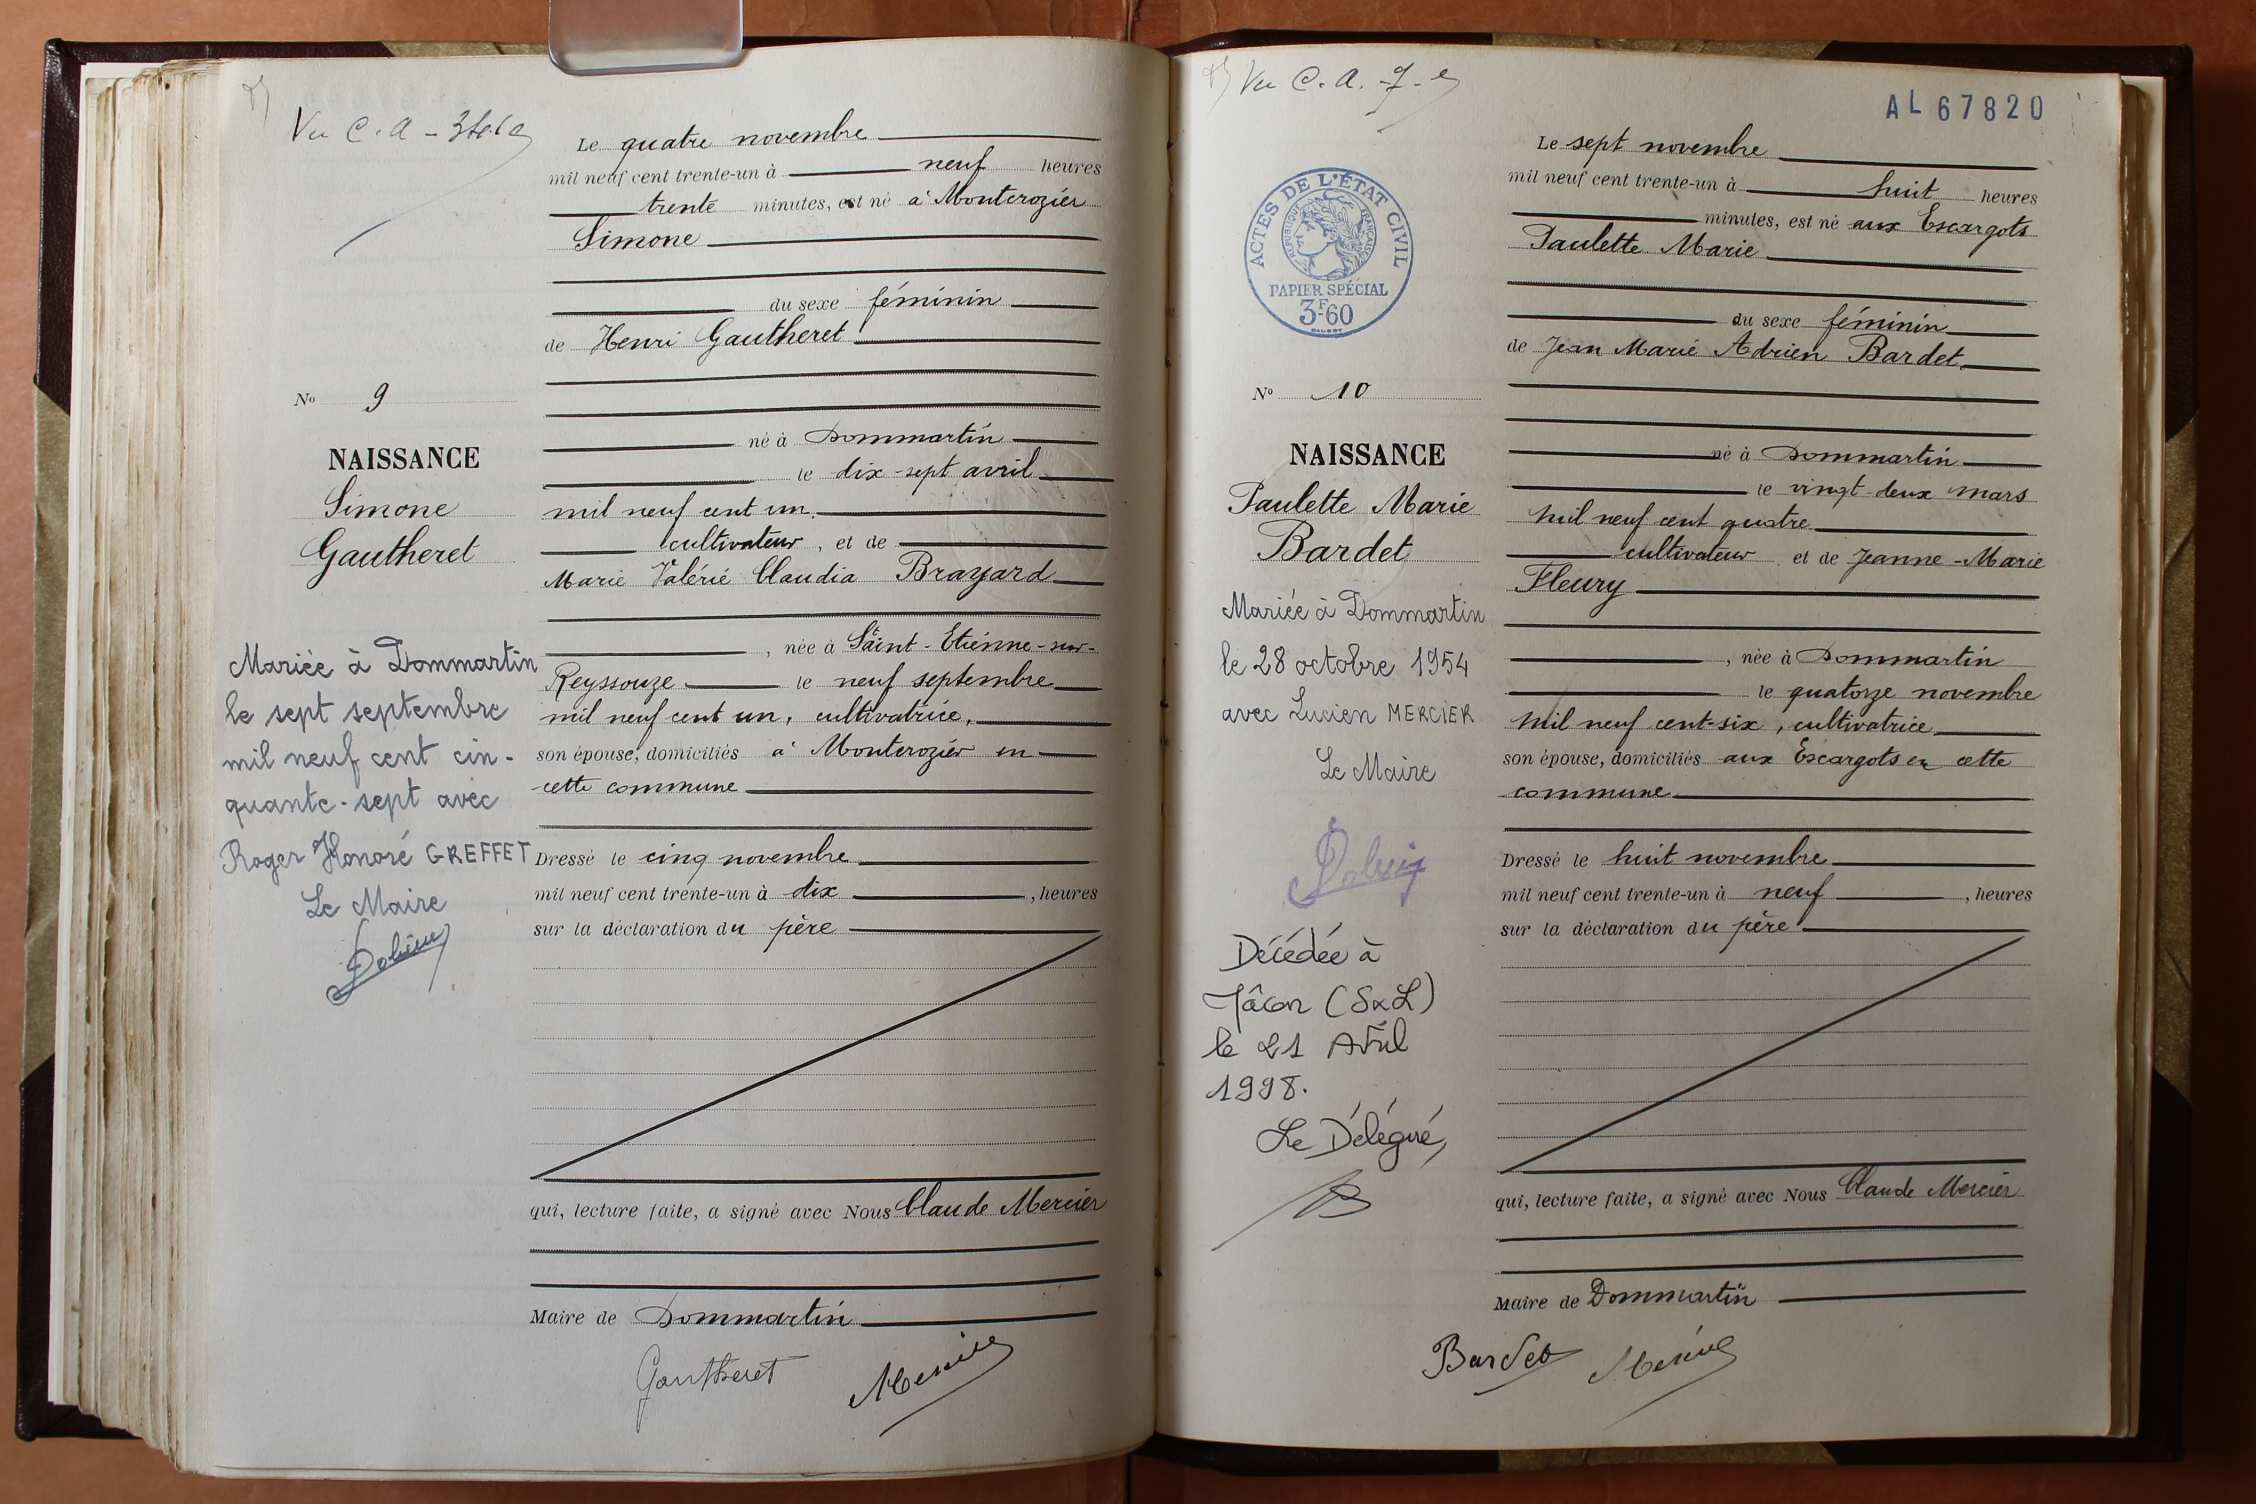 Vu C. A
Le quatre novembre
mil neuf cent trente-un à neuf heures
trente minutes, est né à Montcrozier
Simone
du sexe féminin
de Henri Gautheret
né à Dommartin
le dix-sept avril
mil neuf cent un
cultivateur, et de
Marie Valérie Claudia Brayard
, née à Saint-Etienne-sur-
Reyssouze le neuf septembre
mil neuf cent un, cultivatrice,
son épouse, domiciliés à Montcrozier en
cette commune
Dressé le cinq novembre
mil neuf cent trente-un à dix , heures
sur la déclaration du père
qui, lecture faite, a signé avec Nous Claude Mercier
Maire de Dommartin
Gautheret Mercier
No 9
NAISSANCE
Simone
Gautheret
Mariée à Dommartin
le sept septembre
mil neuf cent cin-
quante-sept avec
Roger Honoré GREFFET
Le Maire
Vu C. A. 7
AL 67820
ACTES DE L'ÉTAT CIVIL
RÉPUBLIQUE FRANÇAISE
PAPIER SPÉCIAL
3F60
Le sept novembre
mil neuf cent trente-un à huit heures
minutes, est né aux Escargots
Paulette Marie
du sexe féminin
de Jean Marie Adrien Bardet
né à Dommartin
le vingt-deux mars
mil neuf cent quatre
cultivateur et de Jeanne-Marie
Fleury
, née à Dommartin
le quatorze novembre
mil neuf cent-six, cultivatrice
son épouse, domiciliés aux Escargots en cette
commune
Dressé le huit novembre
mil neuf cent trente-un à neuf , heures
sur la déclaration du père
qui, lecture faite, a signé avec Nous Claude Mercier
Maire de Dommartin
Bardet Mercier
No 10
NAISSANCE
Paulette Marie
Bardet
Mariée à Dommartin
le 28 octobre 1954
avec Lucien MERCIER
Le Maire
Décédée à
Mâcon (S&L)
le 21 Avril
1998.
Le Délégué,